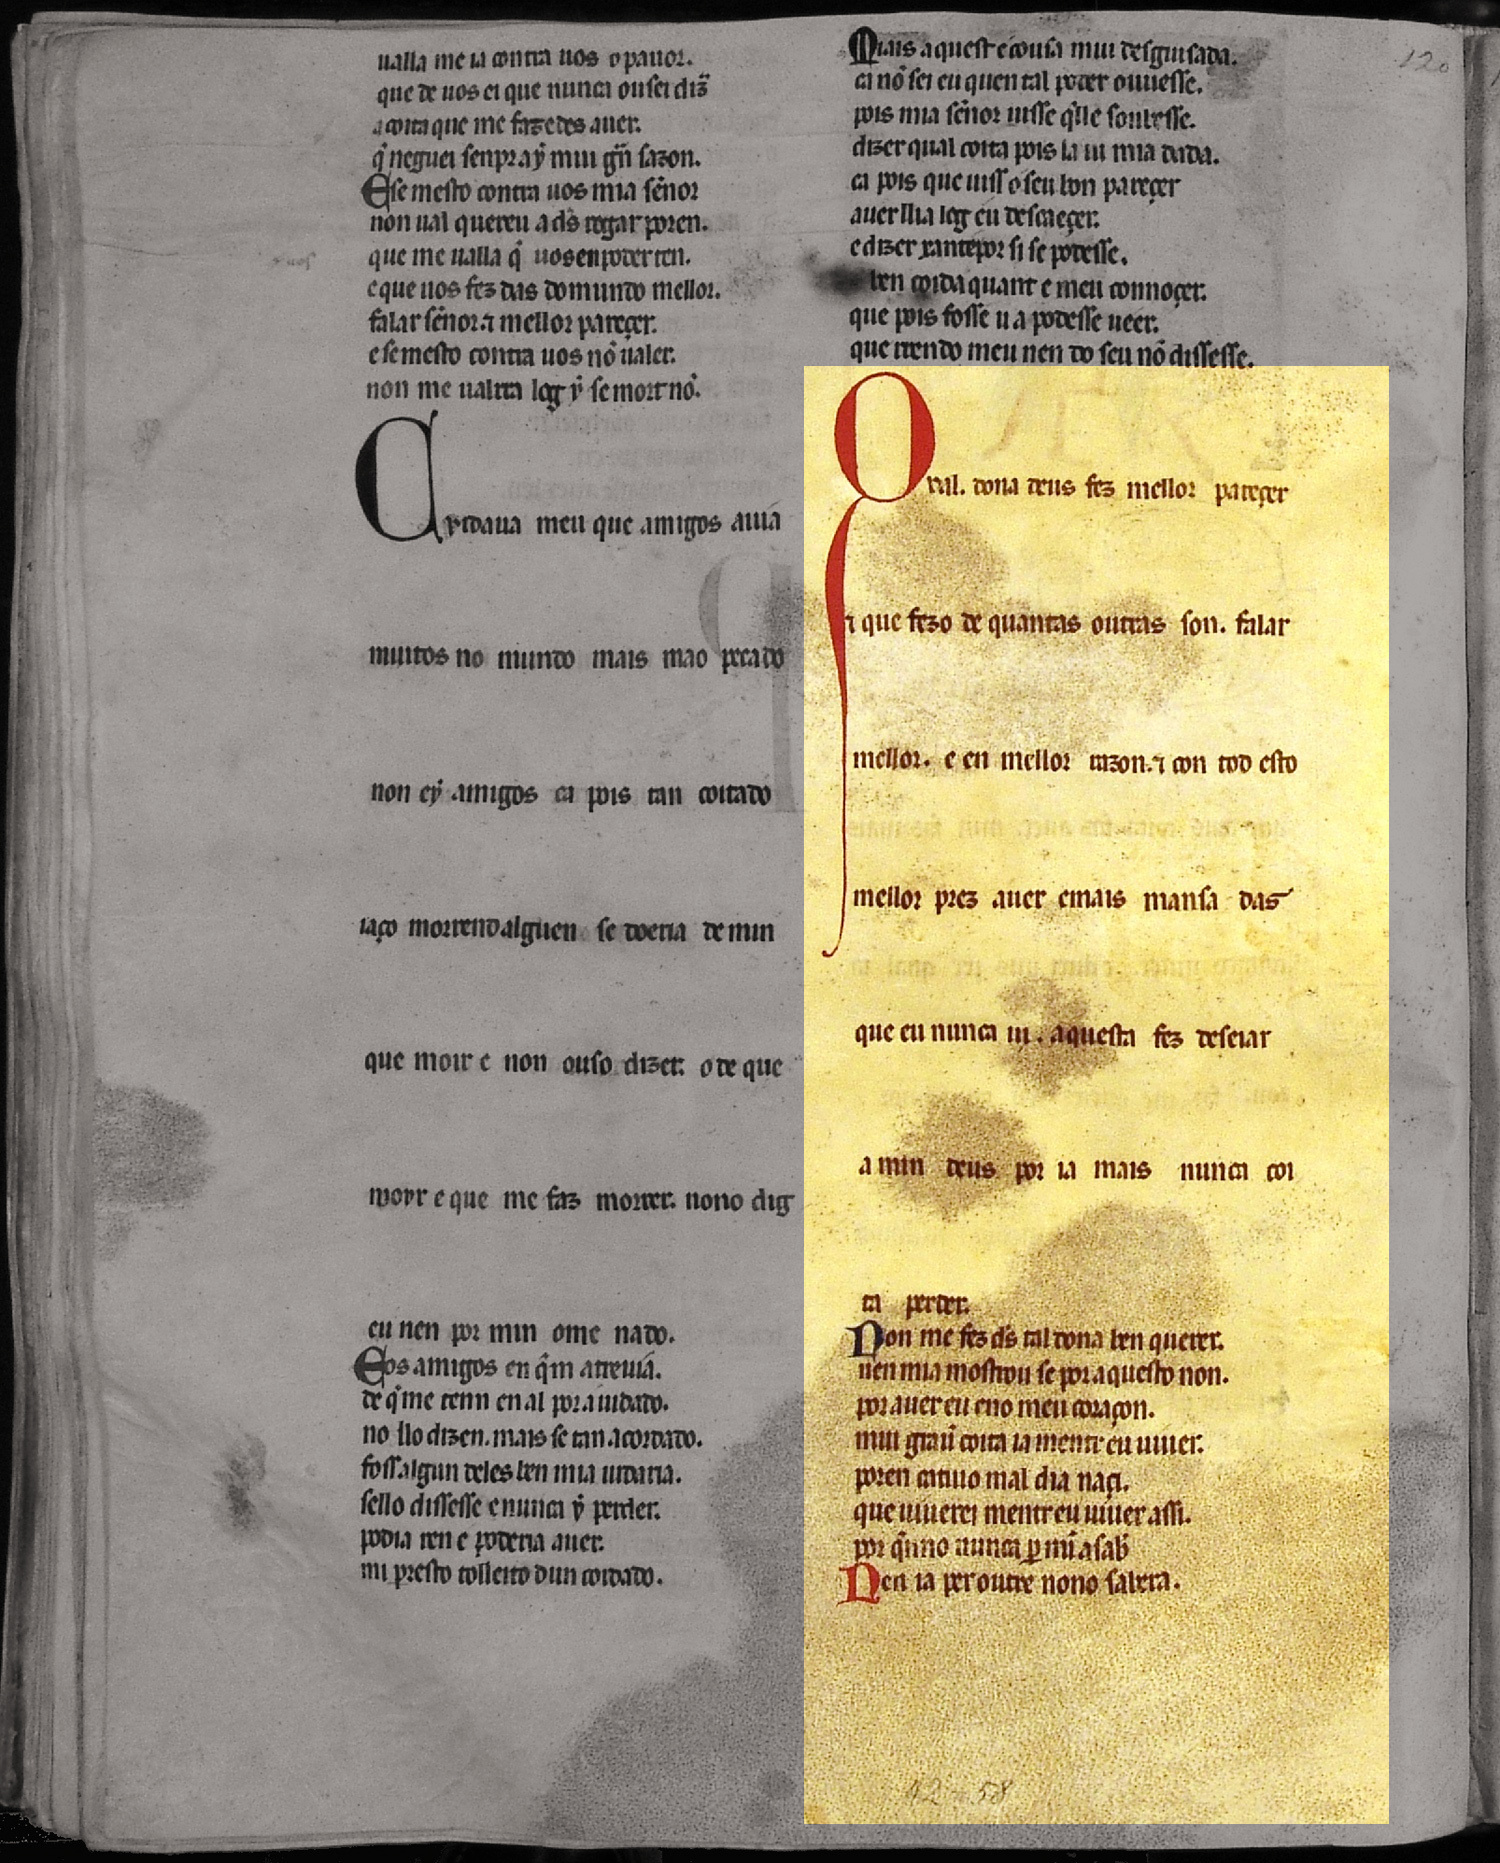 ualla me ia contra uos o pauor.
que de uos ei que nunca ousei diz̃
a coita que me fazedes auer.
q̇ neguei senpr aẏ mui gñ sazon.
E se mesto contra uos mia señor
non ual quereu a dẽs rogar poren.
que me ualla q̇ uos en poder ten.
e que uos fez das do mundo mellor.
falar señor. ⁊ mellor pareçer.
e se mesto contra uos nõ ualer.
non me ualrra log ẏ se mort nõ.
Cuydaua meu que amigos auiã
muitos no mundo mais mao pecado
non eẏ amigos ca pois tan coitado
iaço morrend alguen se doeria de min
que moir e non ouso dizer. o de que
moyr e que me faz morrer. nono dig
eu nen por min ome nado.
E os amigos en q̇m atreuiã.
de q̇ me tenn en al por aiudado.
no llo dizen. mais se tan acordado.
foss algun deles ben mia iurdaria.
sello dissesse e nunca ẏ perder.
podia ren e poderia auer.
mi presto tolleito dun coidado.
Mais aquest e cousa mui desguisada.
ca nõ sei eu quen tal poder ouuesse.
pois mia señor uisse q̇lle soubesse.
dizer qual coita pois la ui mia dada.
ca pois que uiss o seu bon pareçer
auer llia log eu descaeçer.
e dizer xante por si se podesse.
ben coida quant e meu connoçer.
que pois fosse u a podesse ueer.
que rrendo meu nen do seu nõ dissesse.
O
ral. dona deus fez mellor pareçer
⁊ que fezo de quantas outras son. falar
mellor. e en mellor razon. ⁊ con tod esto
mellor prez auer e mais mansa das
que eu nunca ui. aquesta fez deseiar
a min deus por ia mais nunca coi
ta perder.
Non me fez dẽs tal dona ben querer.
nen mia mostrou se por aquesto non.
por auer eu eno meu coraçon.
mui grãu coita ia mentr eu uiuer.
poren catiuo mal dia naçi.
que uiuerei mentr eu uiuer assi.
por q̃ mo nunca ꝑ mĩ a sab̃
Nen ia per outre nono sabera.
120
42 - 58